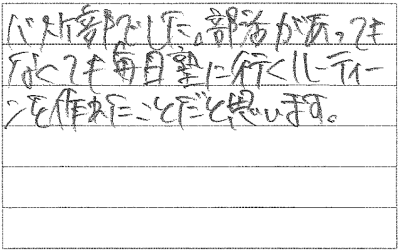 バスケ部でした。部活があっても
なくても毎日塾に行くルーティー
ンを作れたことだと思います。